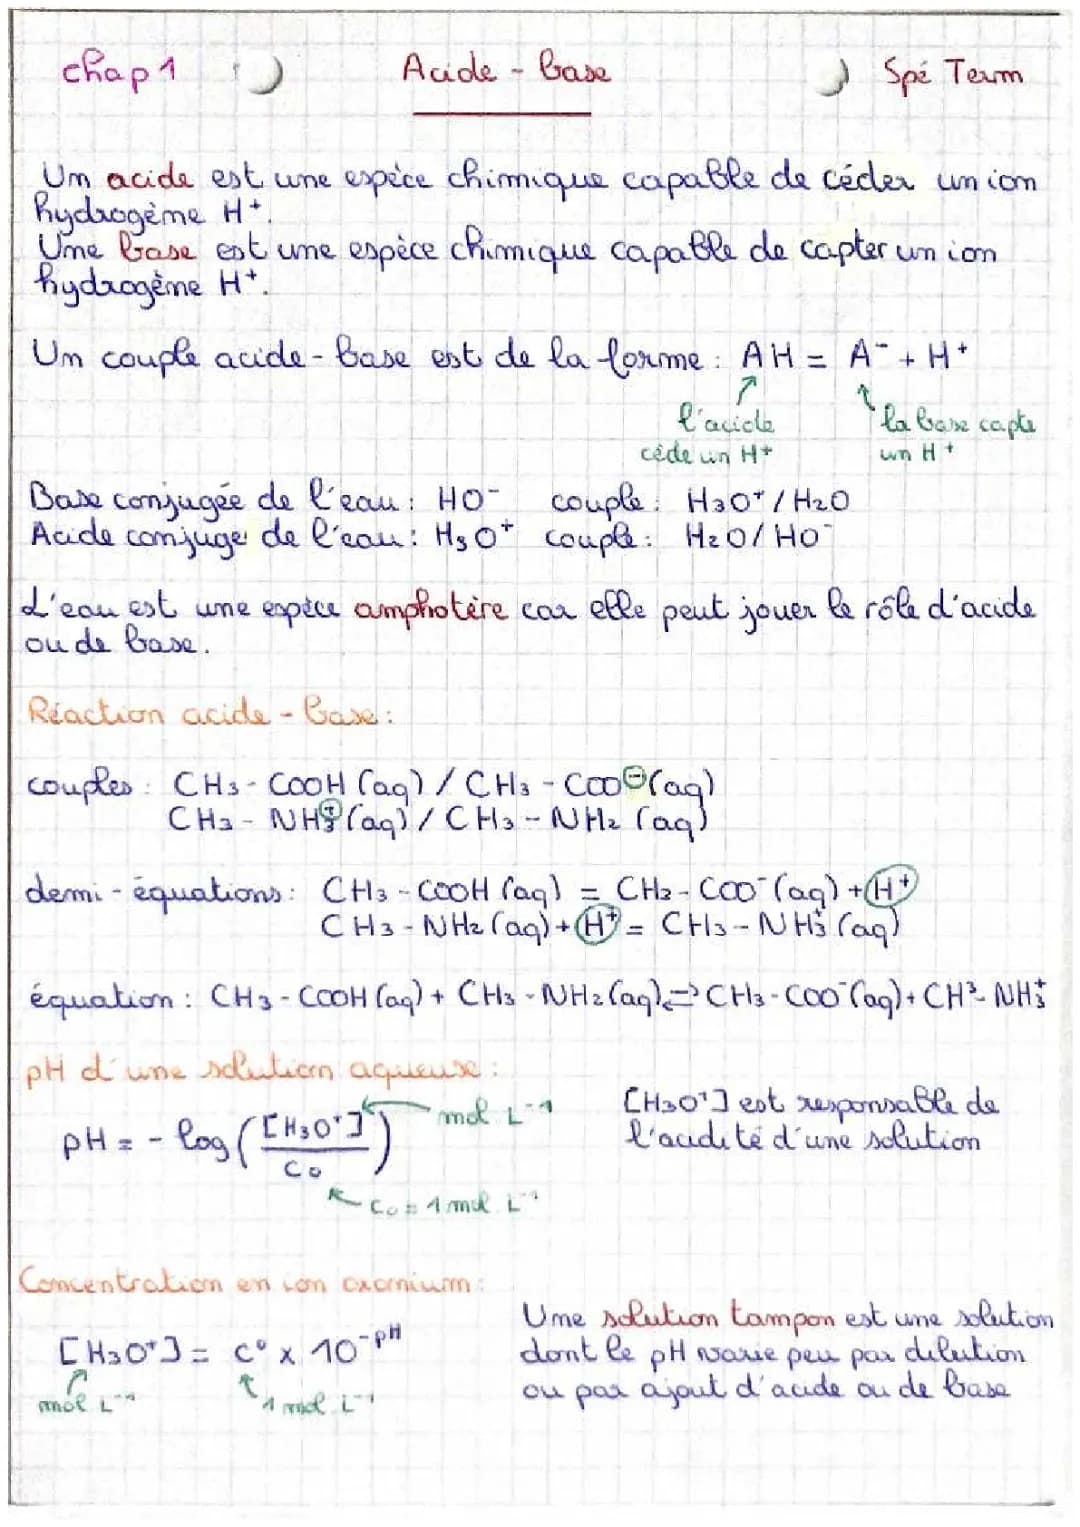 chap 1 Acide - base Spé Term
Un acide est une espèce chimique capable de céder un ion
hydrogène H⁺.
Une base est une espèce chimique capable de capter un ion
hydrogène H⁺.
Un couple acide - base est de la forme : AH = A⁻ + H⁺
l'acide la base capte
cède un H⁺ un H⁺
Base conjugée de l'eau : HO⁻ couple : H₃O⁺ / H₂O
Acide conjugé de l'eau : H₃O⁺ couple : H₂O / HO⁻
L'eau est une espèce amphotère car elle peut jouer le rôle d'acide
ou de base.
Réaction acide - base :
couples : CH₃ - COOH (aq) / CH₃ - COO⊖ (aq)
CH₃ - NH₃⊕ (aq) / CH₃ - NH₂ (aq)
demi - équations : CH₃ - COOH (aq) = CH₃ - COO⁻ (aq) + H⁺
CH₃ - NH₂ (aq) + H⁺ = CH₃ - NH₃⁺ (aq)
équation : CH₃ - COOH (aq) + CH₃ - NH₂ (aq) ⇌ CH₃ - COO⁻ (aq) + CH³ - NH₃⁺
pH d'une solution aqueuse :
pH = - log ([H₃O⁺] / C₀) mol L⁻¹
C₀ = 1 mol L⁻¹
[H₃O⁺] est responsable de
l'acidité d'une solution
Concentration en ion oxonium :
[H₃O⁺] = C° x 10⁻ᵖᴴ
mol L⁻¹ 1 mol L⁻¹
Une solution tampon est une solution
dont le pH varie peu par dilution
ou par ajout d'acide ou de base